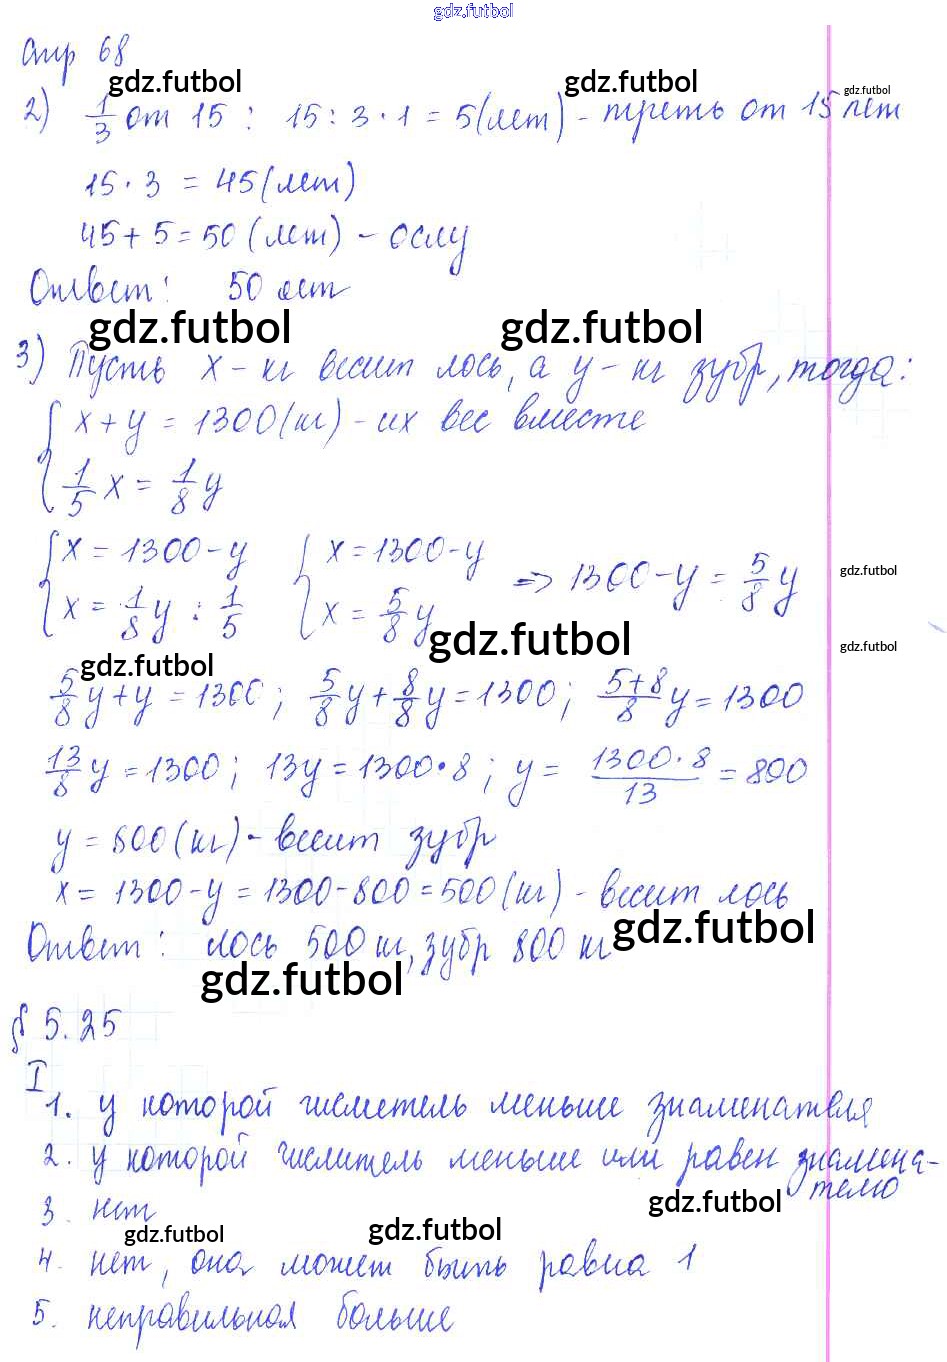 gdz.futbol
стр 68
gdz.futbol gdz.futbol gdz.futbol
2) 1/3 от 15 : 15 : 3 · 1 = 5 (лет) - треть от 15 лет
15 · 3 = 45 (лет)
45 + 5 = 50 (лет) - ослу
Ответ: 50 лет
gdz.futbol gdz.futbol
3) Пусть x - кг весит лось, а y - кг зубр, тогда:
{ x + y = 1300 (кг) - их вес вместе
1/5 x = 1/8 y
{ x = 1300 - y { x = 1300 - y => 1300 - y = 5/8 y
x = 1/8 y : 1/5 x = 5/8 y
gdz.futbol
gdz.futbol gdz.futbol
gdz.futbol
5/8 y + y = 1300 ; 5/8 y + 8/8 y = 1300 ; (5+8)/8 y = 1300
13/8 y = 1300 ; 13y = 1300 · 8 ; y = (1300 · 8)/13 = 800
y = 800 (кг) - весит зубр
x = 1300 - y = 1300 - 800 = 500 (кг) - весит лось
Ответ: лось 500 кг, зубр 800 кг
gdz.futbol
gdz.futbol
§ 5.25
I
1. у которой числитель меньше знаменателя
2. у которой числитель меньше или равен знамена-
телю
3. нет
gdz.futbol gdz.futbol gdz.futbol
4. нет, она может быть равна 1
5. неправильная больше